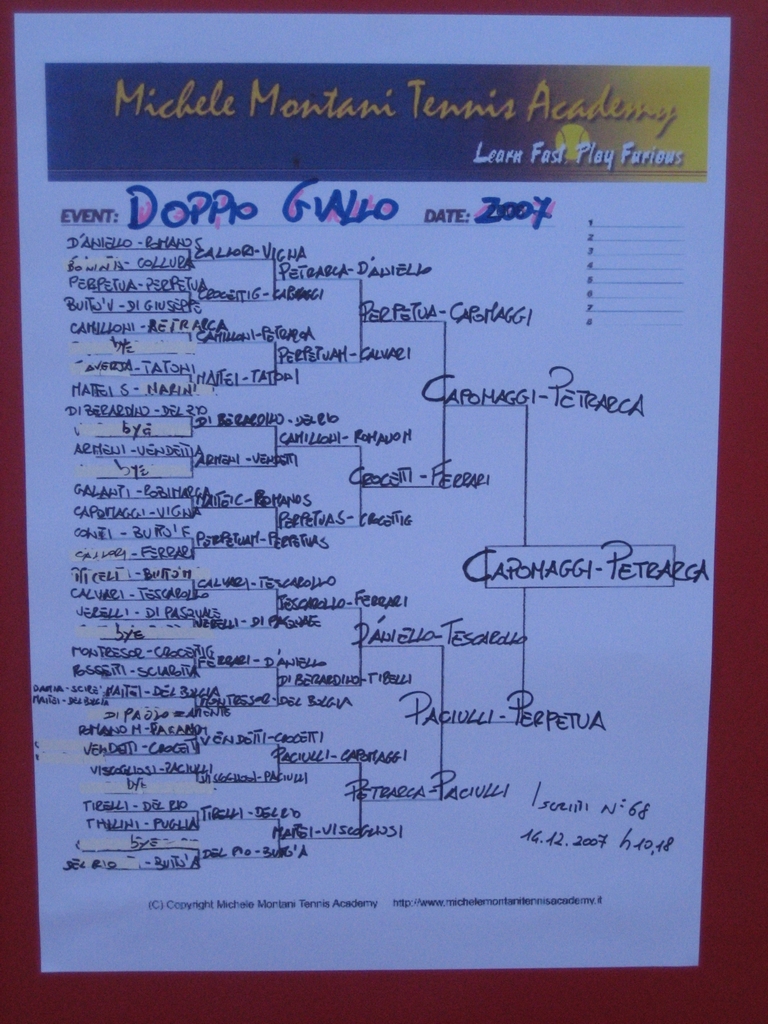 Michele Montani Tennis Academy
Learn Fast Play Furious
EVENT: DOPPIO GIALLO DATE: 2007
1
2
3
4
5
6
7
8
D'ANIELLO - ROMANO S
COLLURA
PERPETUA - PERPETUA
BUITO'V - DI GIUSEPPE
CAMILLONI - PETRARCA
bye
TAVERJA - TATONI
MATTEI S - MARINI
DI BERARDINO - DEL RIO
bye
ARMENI - VENDETTI
bye
GALANTI - ROBIMARGA
CAPOMAGGI - VIGNA
CONTI - BUITO'F
CALLORI - FERRARI
MICELI - BUITO'M
CALVARI - TESCAROLLO
VERELLI - DI PASQUALE
bye
MONTRESOR - CROCETTI G
ROSSETTI - SCIARITA
DAMIA - SCIRE'
MATTEI - DEL BUGLIA
MATTEI - DEL BUGLIA
DI PAOLO - AMENTE
ROMANO M - PAGANO M
VENDETTI - CROCETTI
VISCOGLIOSI - PACIULLI
bye
TIRELLI - DEL RIO
THILINI - PUGLIA
bye
DEL RIO - BUITO'A
CALLORI - VIGNA
CROCETTI G - CAPOMAGGI
CAMILLONI - PETRARCA
MATTEI - TATONI
DI BERARDINO - DEL RIO
ARMENI - VENDETTI
MATTEI C - ROMANO S
PERPETUA M - PERPETUA S
CALVARI - TESCAROLLO
VERELLI - DI PASQUALE
FERRARI - D'ANIELLO
MONTRESOR - DEL BUGLIA
VENDETTI - CROCETTI
VISCOGLIOSI - PACIULLI
TIRELLI - DEL RIO
DEL RIO - BUITO'A
PETRARCA - D'ANIELLO
PERPETUA M - CALVARI
CAMILLONI - ROMANO M
PERPETUA S - CROCETTI G
TESCAROLLO - FERRARI
DI BERARDINO - TIRELLI
PACIULLI - CAPOMAGGI
MATTEI - VISCOGLIOSI
PERPETUA - CAPOMAGGI
CROCETTI - FERRARI
D'ANIELLO - TESCAROLLO
PETRARCA - PACIULLI
CAPOMAGGI - PETRARCA
PACIULLI - PERPETUA
CAPOMAGGI - PETRARCA
ISCRITTI N° 68
14.12.2007 h 10,18
(C) Copyright Michele Montani Tennis Academy http://www.michelemontanitennisacademy.it